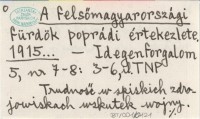 A Felsőmagyarországi
fürdők poprádi értekezlete,
1915... — Idegenforgalom
5, nr 7-8: 3-6, d. TNP
Trudność w spiskich zdro
jowiskach wskutek wojny.